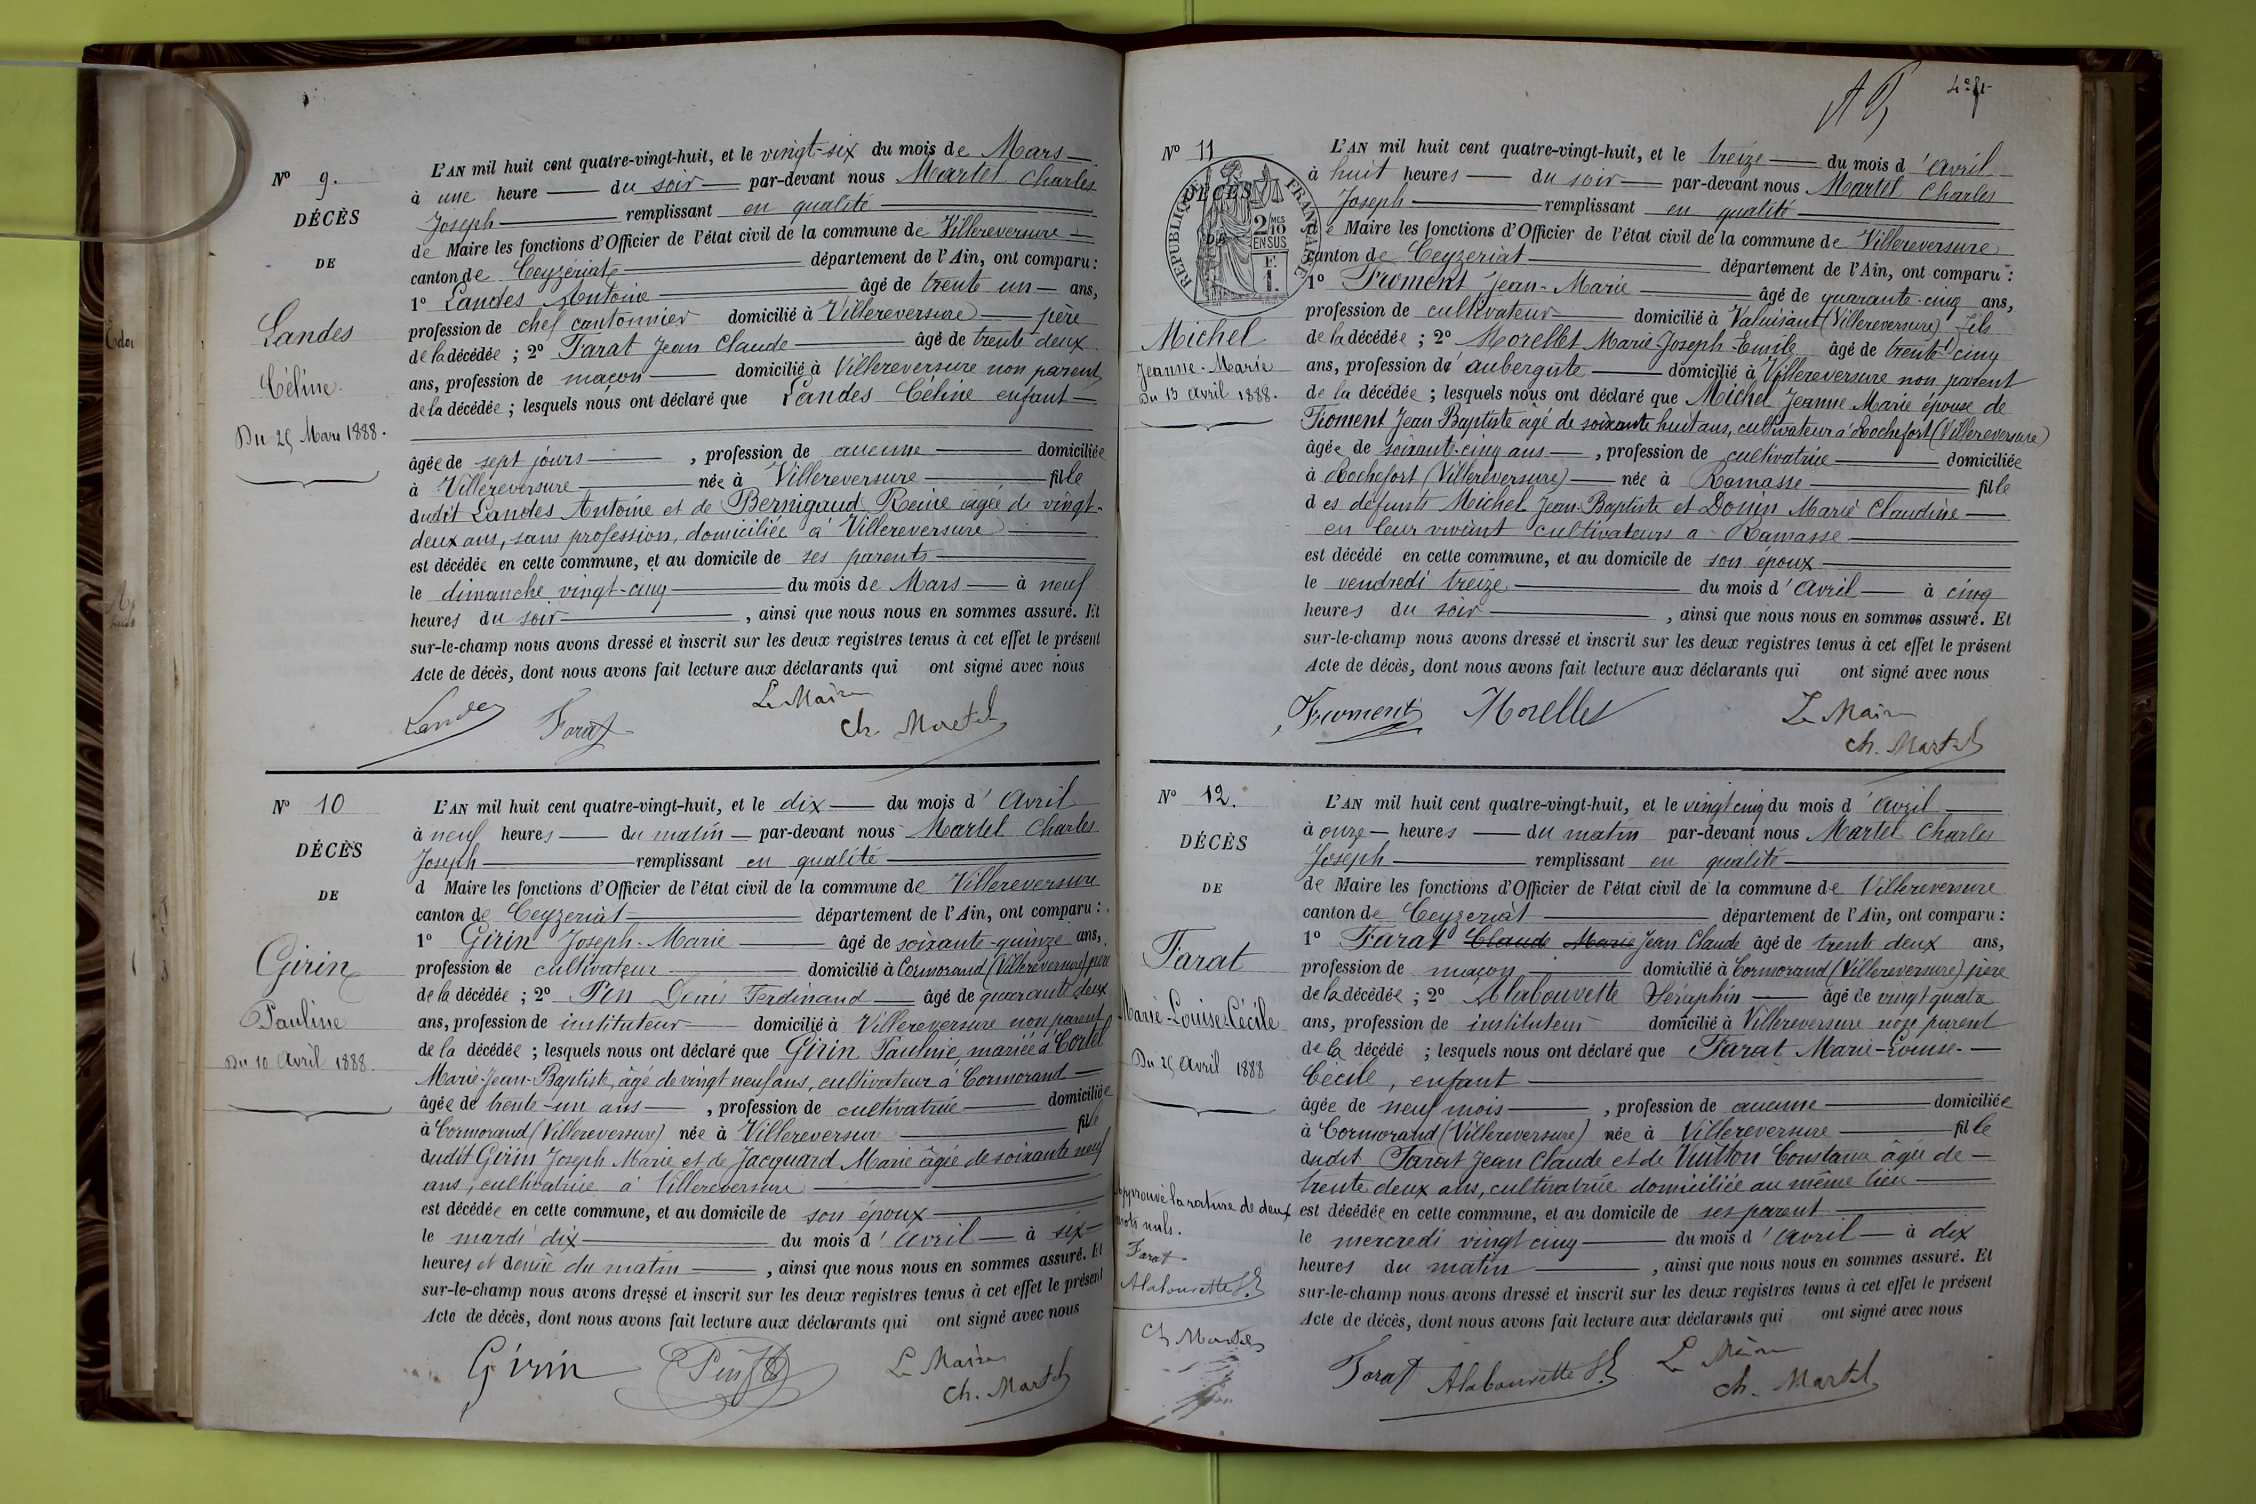 Nº 9.
DÉCÈS
DE
Landes
Céline.
Du 25 Mars 1888.
L'AN mil huit cent quatre-vingt-huit, et le vingt-six du mois de Mars
à une heure du soir par-devant nous Martel Charles
Joseph remplissant en qualité
de Maire les fonctions d'Officier de l'état civil de la commune de Villereversure
canton de Ceyzériat département de l'Ain, ont comparu :
1º Landes Antoine âgé de trente un ans,
profession de chef cantonnier domicilié à Villereversure père
de la décédée ; 2º Farat Jean Claude âgé de trente deux
ans, profession de maçon domicilié à Villereversure non parent
de la décédée ; lesquels nous ont déclaré que Landes Céline enfant
âgée de sept jours , profession de aucune domiciliée
à Villereversure née à Villereversure fille
dudit Landes Antoine et de Bernigaud Reine âgée de vingt-
deux ans, sans profession, domiciliée à Villereversure
est décédée en cette commune, et au domicile de ses parents
le dimanche vingt-cinq du mois de Mars à neuf
heures du soir , ainsi que nous nous en sommes assuré. Et
sur-le-champ nous avons dressé et inscrit sur les deux registres tenus à cet effet le présent
Acte de décès, dont nous avons fait lecture aux déclarants qui ont signé avec nous
Landes Farat Le Maire
Ch. Martel
Nº 10
DÉCÈS
DE
Girin
Pauline
Du 10 Avril 1888.
L'AN mil huit cent quatre-vingt-huit, et le dix du mois d'Avril
à neuf heures du matin par-devant nous Martel Charles
Joseph remplissant en qualité
d Maire les fonctions d'Officier de l'état civil de la commune de Villereversure
canton de Ceyzeriat département de l'Ain, ont comparu :
1º Girin Joseph-Marie âgé de soixante-quinze ans,
profession de cultivateur domicilié à Cormorand (Villereversure) père
de la décédée ; 2º Pin Denis Ferdinand âgé de quarante deux
ans, profession de instituteur domicilié à Villereversure non parent
de la décédée ; lesquels nous ont déclaré que Girin Pauline, mariée à Cortel
Marie-Jean-Baptiste, âgé de vingt neuf ans, cultivateur à Cormorand
âgée de trente-un ans , profession de cultivatrice domiciliée
à Cormorand (Villereversure) née à Villereversure fille
dudit Girin Joseph Marie et de Jacquard Marie âgée de soixante neuf
ans, cultivatrice à Villereversure
est décédée en cette commune, et au domicile de son époux
le mardi dix du mois d'Avril à six
heures et demie du matin , ainsi que nous nous en sommes assuré. Et
sur-le-champ nous avons dressé et inscrit sur les deux registres tenus à cet effet le présent
Acte de décès, dont nous avons fait lecture aux déclarants qui ont signé avec nous
Girin Pin Le Maire
Ch. Martel
Nº 11
DÉCÈS
DE
RÉPUBLIQUE FRANÇAISE
2 MES
10
EN SUS
F.
1.
Michel
Jeanne-Marie
Du 13 Avril 1888.
L'AN mil huit cent quatre-vingt-huit, et le treize du mois d'Avril
à huit heures du soir par-devant nous Martel Charles
Joseph remplissant en qualité
de Maire les fonctions d'Officier de l'état civil de la commune de Villereversure
canton de Ceyzeriat département de l'Ain, ont comparu :
1º Froment Jean-Marie âgé de quarante-cinq ans,
profession de cultivateur domicilié à Valuisant (Villereversure) fils
de la décédée ; 2º Morellet Marie-Joseph-Emile âgé de trente cinq
ans, profession d'aubergiste domicilié à Villereversure non parent
de la décédée ; lesquels nous ont déclaré que Michel Jeanne Marie épouse de
Froment Jean Baptiste âgé de soixante huit ans, cultivateur à Rochefort (Villereversure)
âgée de soixante-cinq ans , profession de cultivatrice domiciliée
à Rochefort (Villereversure) née à Ramasse fille
des défunts Michel Jean-Baptiste et Donin Marie Claudine
en leur vivant cultivateurs à Ramasse
est décédé en cette commune, et au domicile de son époux
le vendredi treize du mois d'Avril à cinq
heures du soir , ainsi que nous nous en sommes assuré. Et
sur-le-champ nous avons dressé et inscrit sur les deux registres tenus à cet effet le présent
Acte de décès, dont nous avons fait lecture aux déclarants qui ont signé avec nous
Froment Morellet Le Maire
Ch. Martel
Nº 12.
DÉCÈS
DE
Farat
Marie-Louise-Cécile
Du 25 Avril 1888
approuvé la rature de deux
mots nuls.
Farat
Alabouvette
Ch Martel
L'AN mil huit cent quatre-vingt-huit, et le vingt cinq du mois d'Avril
à onze heures du matin par-devant nous Martel Charles
Joseph remplissant en qualité
de Maire les fonctions d'Officier de l'état civil de la commune de Villereversure
canton de Ceyzeriat département de l'Ain, ont comparu :
1º Farat Claude Marie Jean Claude âgé de trente deux ans,
profession de maçon domicilié à Cormorand (Villereversure) père
de la décédée ; 2º Alabouvette Séraphin âgé de vingt quatre
ans, profession de instituteur domicilié à Villereversure non parent
de la décédé ; lesquels nous ont déclaré que Farat Marie-Louise-
Cécile, enfant
âgée de neuf mois , profession de aucune domiciliée
à Cormorand (Villereversure) née à Villereversure fille
dudit Farat Jean Claude et de Vuitton Constance âgée de
trente deux ans, cultivatrice domiciliée au même lieu
est décédée en cette commune, et au domicile de ses parent
le mercredi vingt cinq du mois d'Avril à dix
heures du matin , ainsi que nous nous en sommes assuré. Et
sur-le-champ nous avons dressé et inscrit sur les deux registres tenus à cet effet le présent
Acte de décès, dont nous avons fait lecture aux déclarants qui ont signé avec nous
Farat Alabouvette Le Maire
Ch. Martel